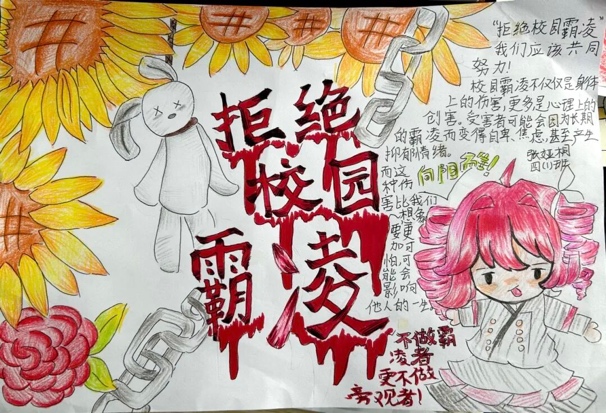 拒绝
校园
霸凌
“拒绝校园霸凌”
我们应该共同
努力!
校园霸凌不仅仅是身体
上的伤害,更多是心理上的
创害。受害者可能会因为长期
的霸凌而变得自卑、焦虑,甚至产生
抑郁情绪。
而这
种伤
害比我们
想象
要更
加可
怕,可
能会
影响
他人的一生
向阳而生!
四(1)班
不做霸
凌者
更不做
旁观者!